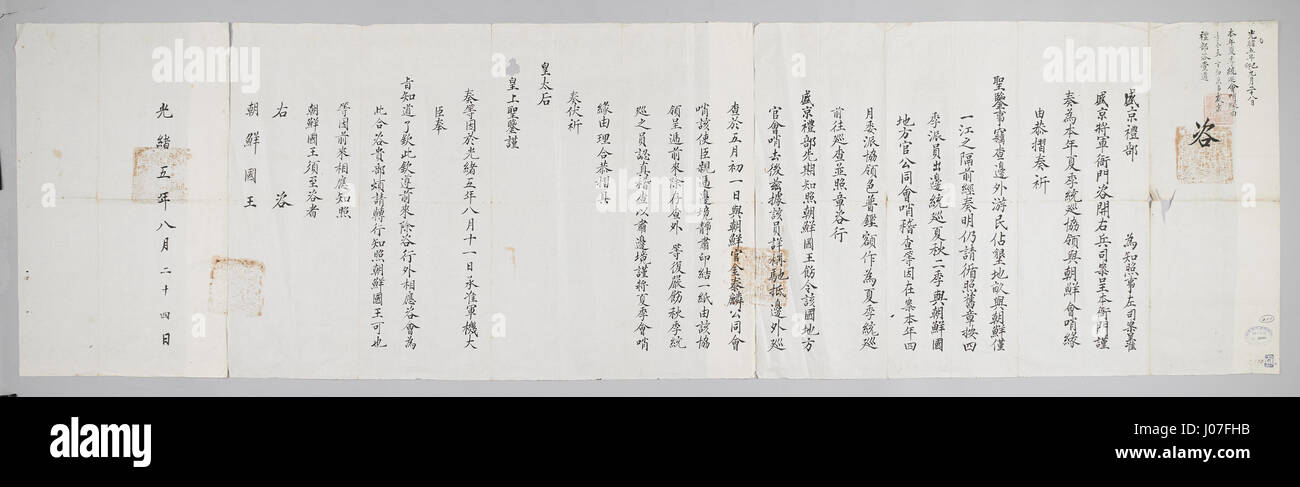 咨
盛京禮部　為知照事左司案呈准
盛京將軍衙門咨開右兵司案呈本衙門謹
奏為本年夏季統巡協領與朝鮮會哨緣
由恭摺奏祈
聖鑒事竊查邊外游民佔墾地畝與朝鮮僅
一江之隔前經奏明仍請循照舊章按四
季派員出邊統巡夏秋二季與朝鮮國
地方官公同會哨稽查等因在案本年四
月委派協領色普鏗額作為夏季統巡
前往巡查並照章咨行
盛京禮部先期知照朝鮮國王飭令該國地方
官會哨去後茲據該員詳稱馳抵邊外巡
查於五月初一日與朝鮮官金泰麟公同會
哨該使臣親遞邊境靜肅印結一紙由該協
領呈遞前來除存查外　等復嚴飭秋季統
巡之員認真稽查以肅邊境謹將夏季會哨
緣由理合恭摺具
奏伏祈
皇太后
皇上聖鑒謹
奏等因於光緒五年八月十一日承准軍機大
臣奉
旨知道了欽此欽遵前來除咨行外相應咨會為
此合咨貴部煩請轉行知照朝鮮國王可也
等因前來相應知照
朝鮮國王須至咨者
右　咨
朝　鮮　國　王
光緒五年八月二十四日
alamy
Image ID: J07FHB
www.alamy.com